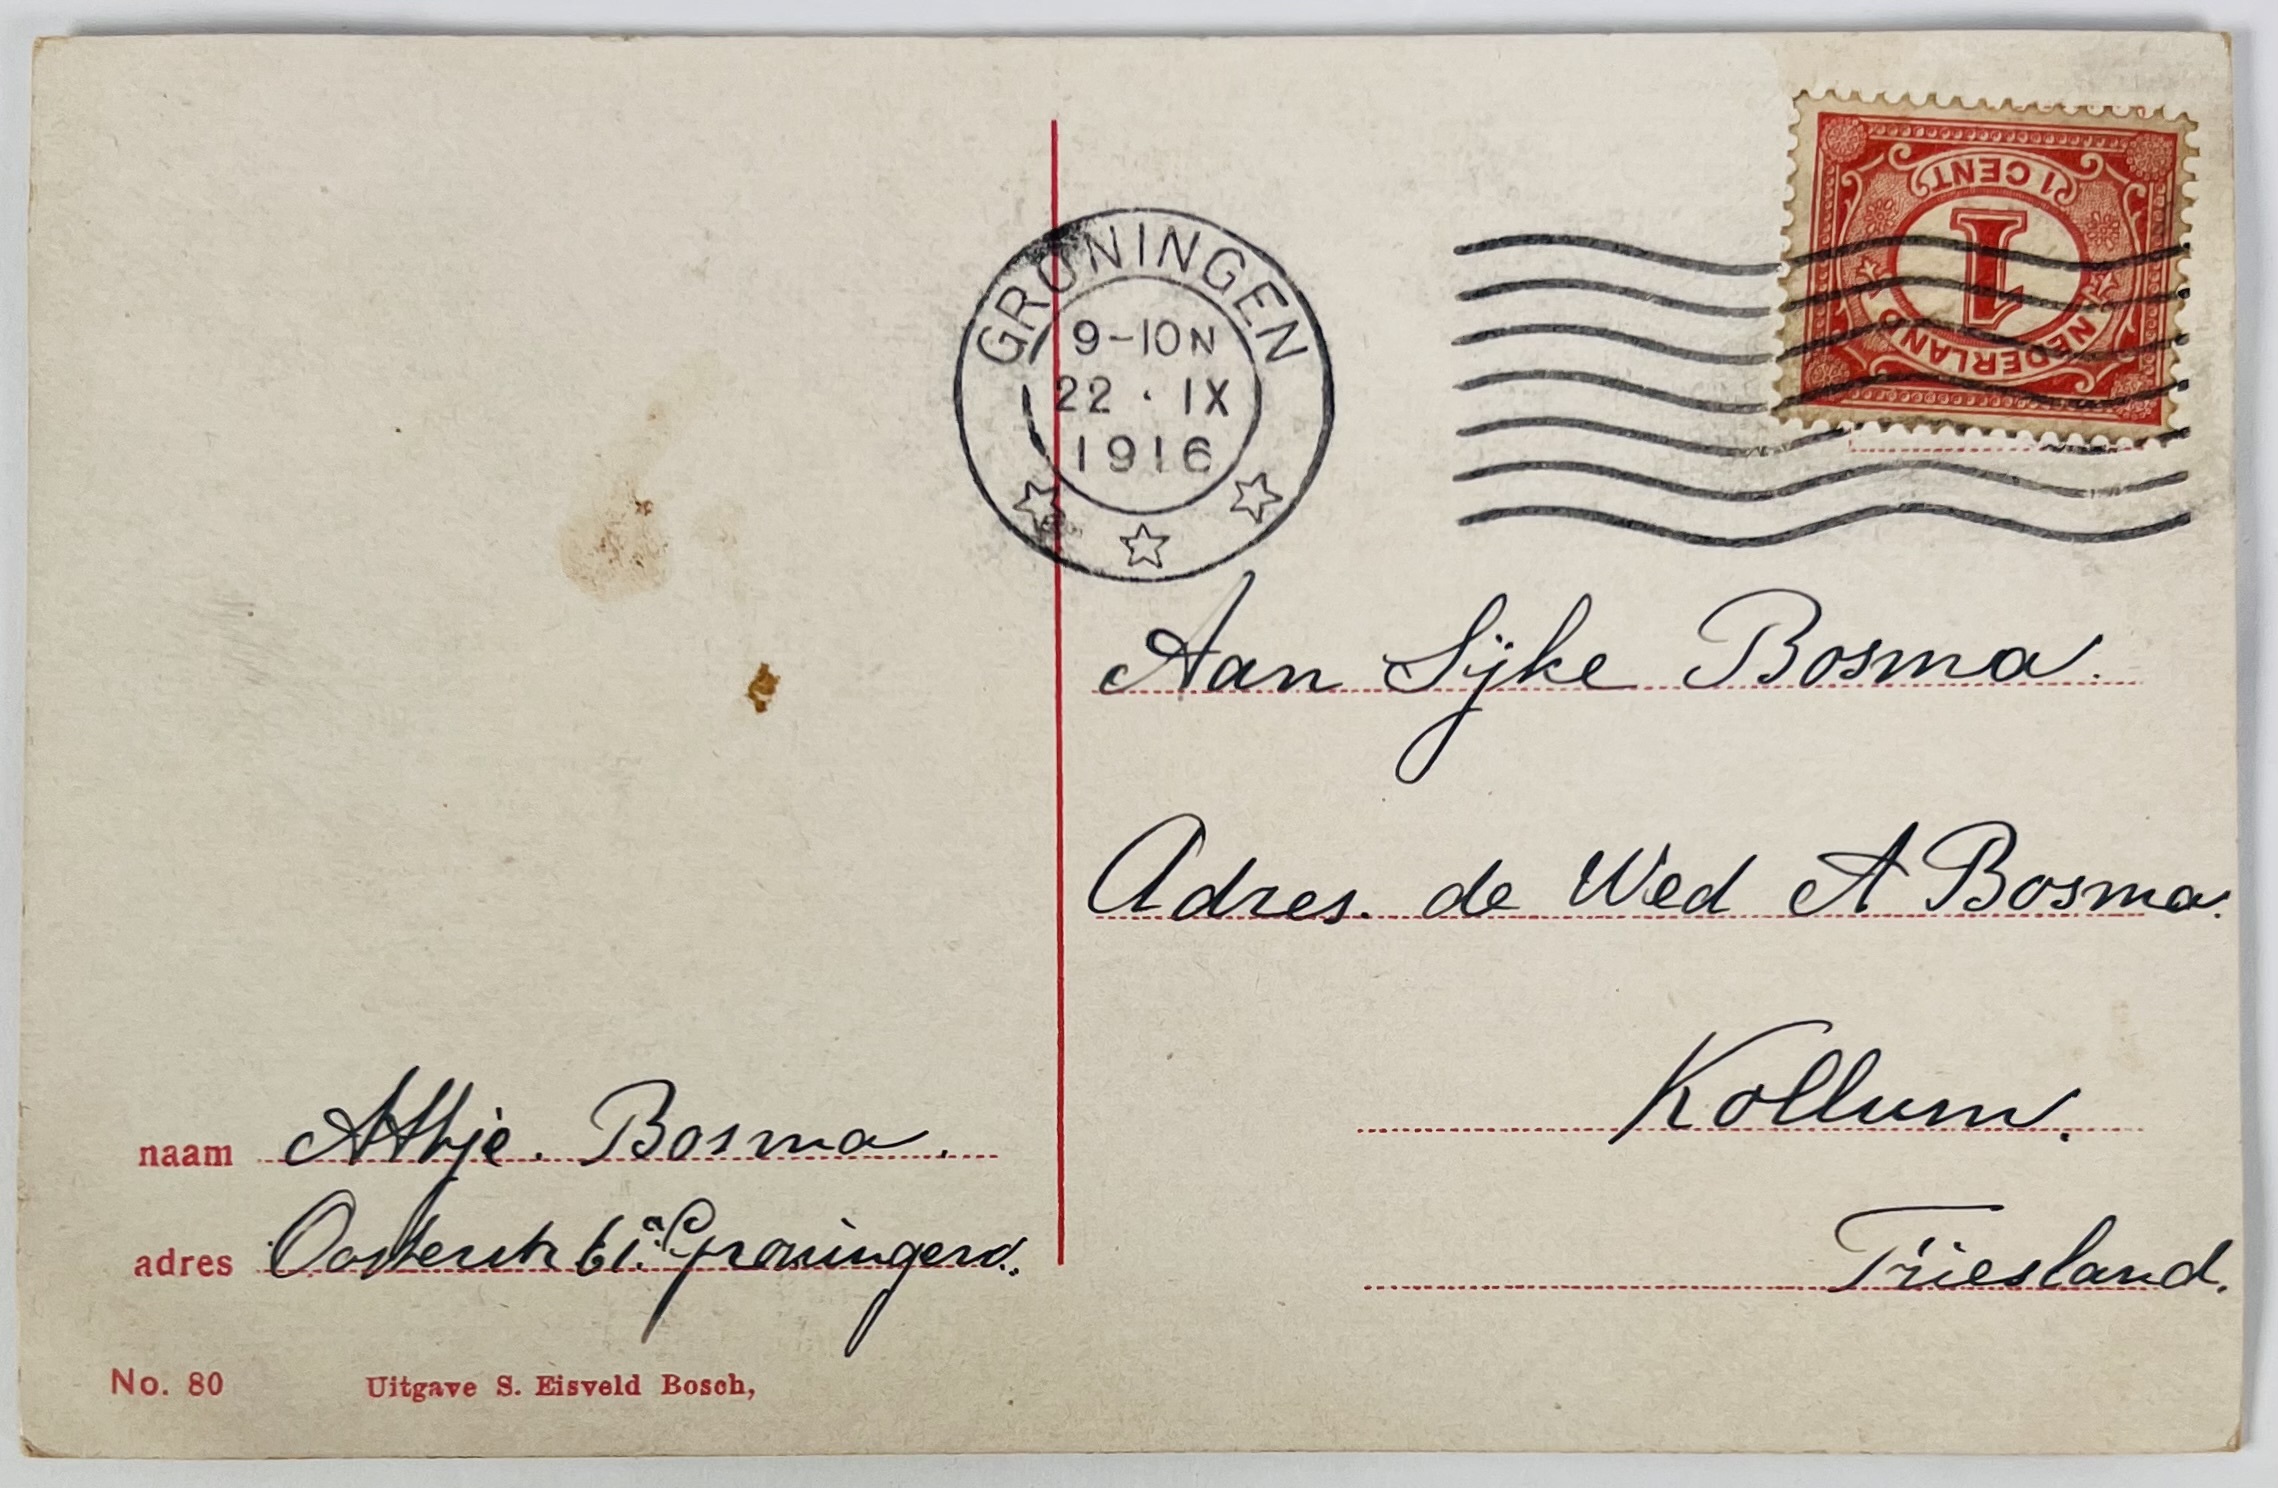 1 CENT
1
NEDERLAND
GRONINGEN
9-10N
22 · IX
1916
Aan Sijke Bosma.
Adres. de Wed A Bosma.
Kollum.
Friesland.
naam Attje. Bosma.
adres Oosterstr 61a Groningen.
No. 80 Uitgave S. Eisveld Bosch,